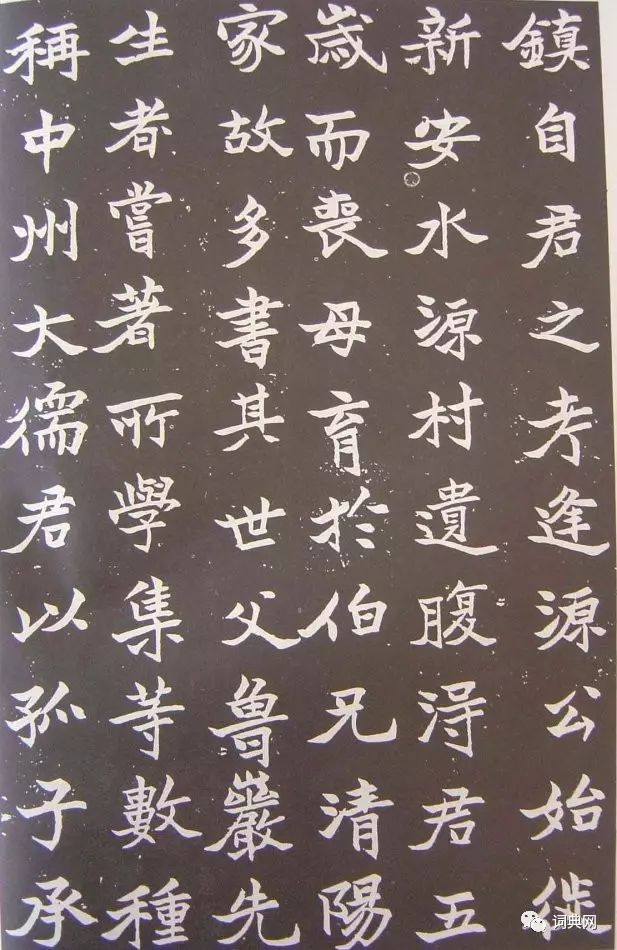 鎮自君之考逢源公始徙
新安水源村遺腹淂君五
歲而喪母育於伯兄清陽
家故多書其世父魯巖先
生者嘗著所學集等數種
稱中州大儒君以孤子承
词典网